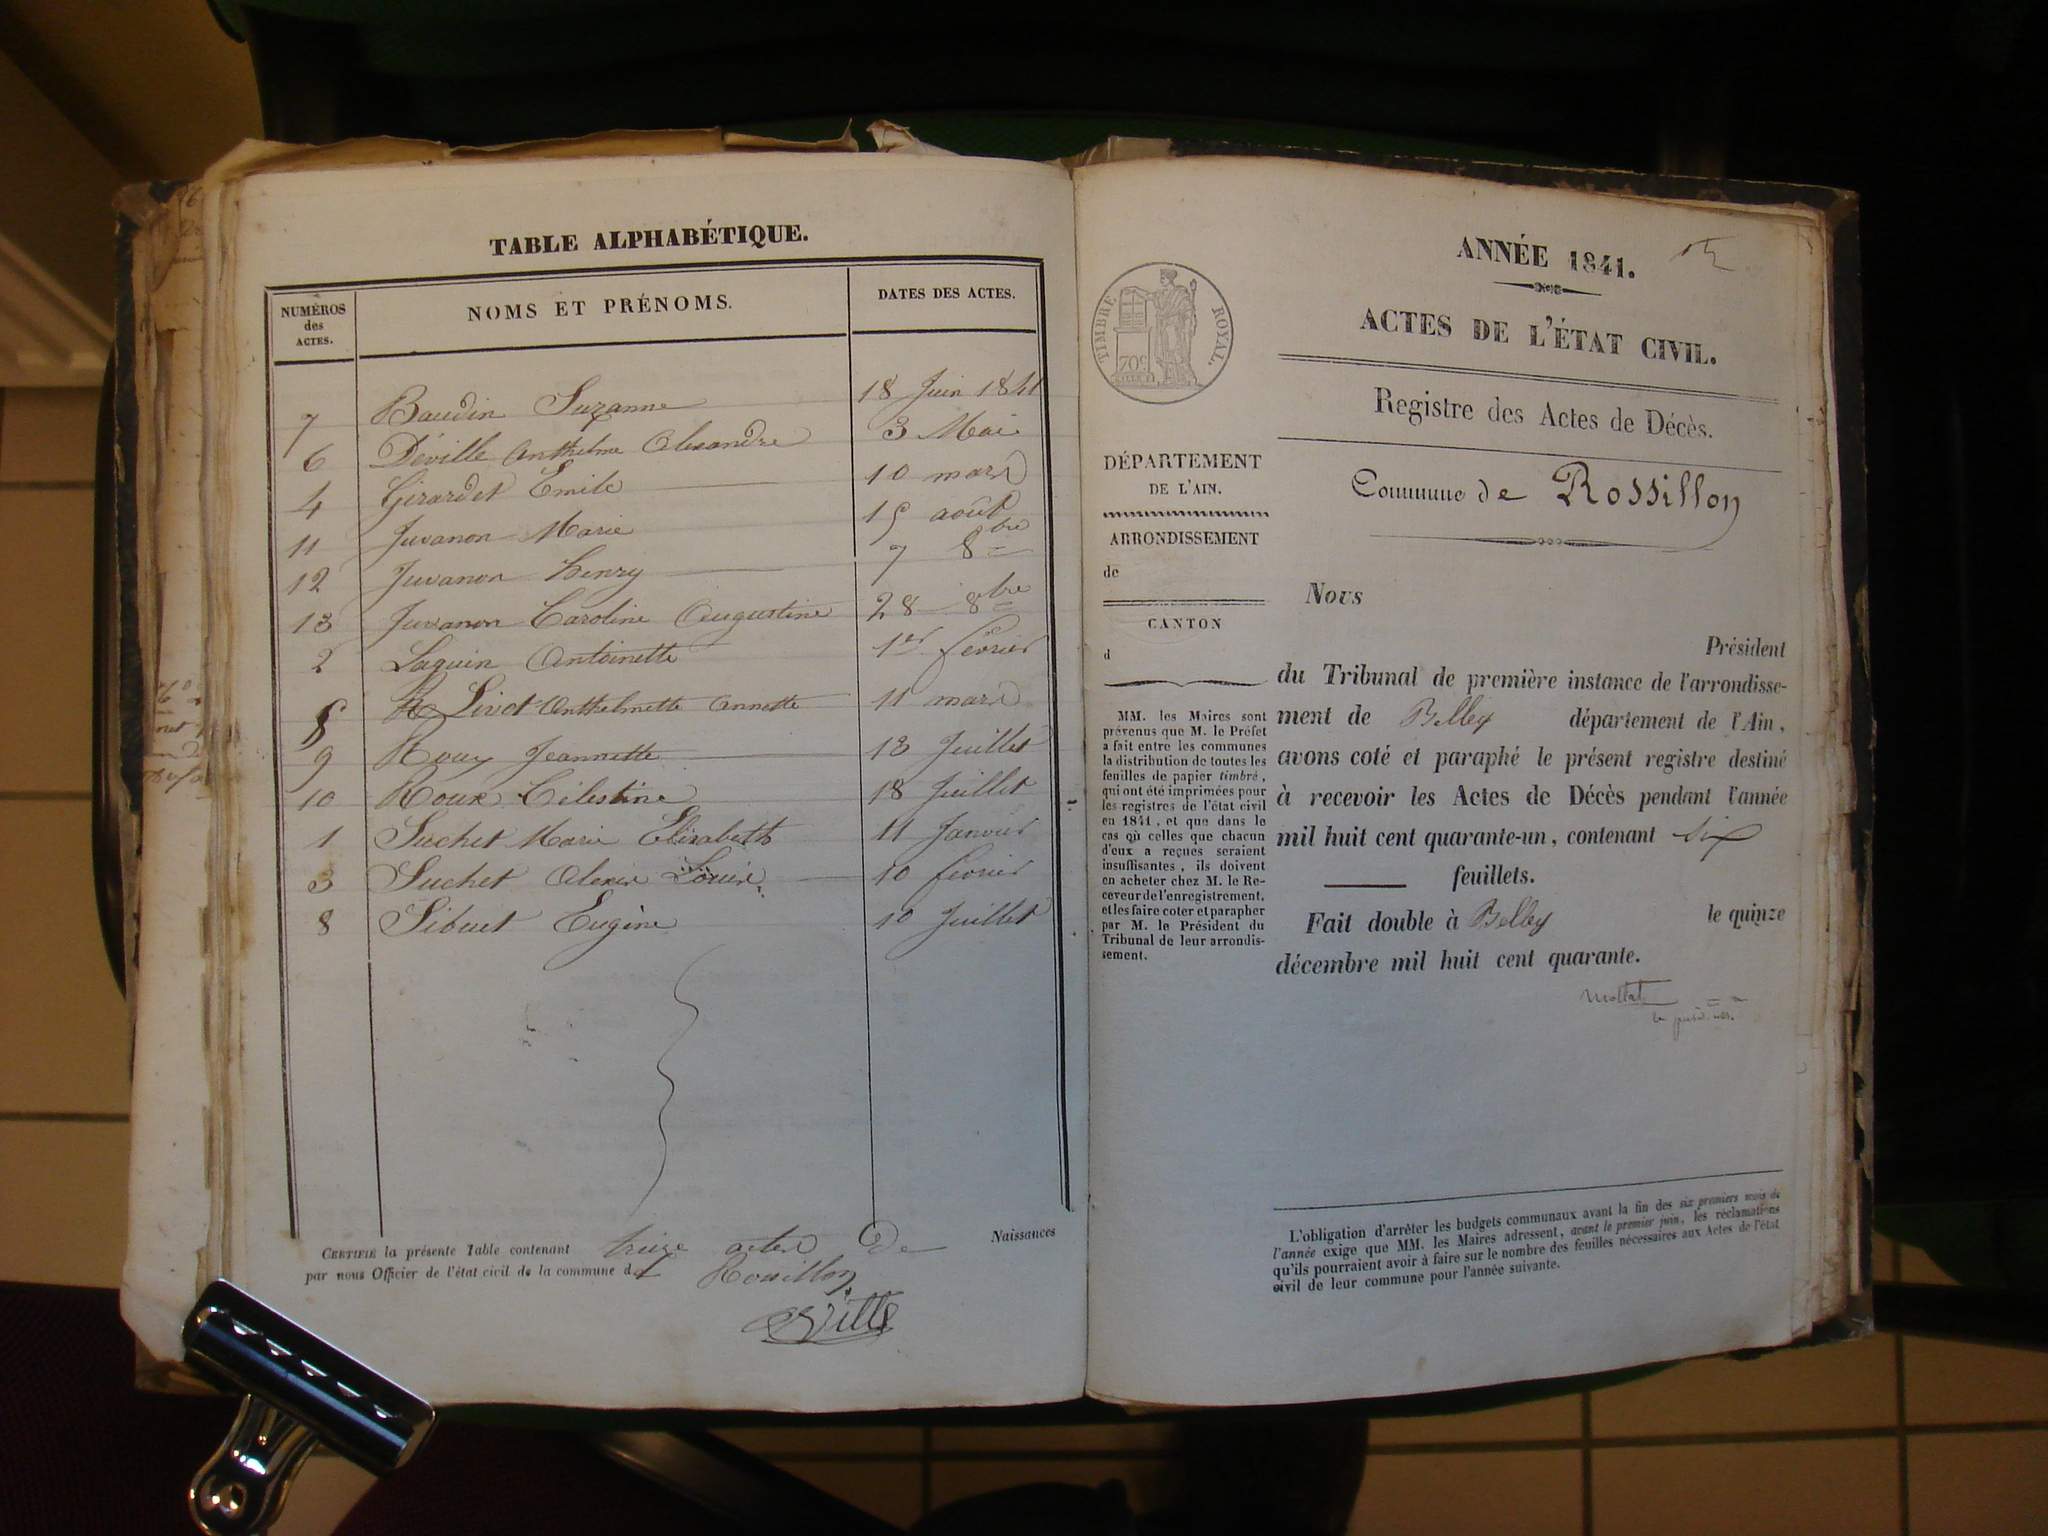 TABLE ALPHABÉTIQUE.
NUMÉROS des ACTES. NOMS ET PRÉNOMS. DATES DES ACTES.
7 Baudin Suzanne 18 Juin 1841
6 Déville Anthelme Alexandre 3 Mai
4 Girardet Emile 10 mars
11 Juvanon Marie 15 août
12 Juvanon Henry 7 8bre
13 Juvanon Caroline Augustine 28 8bre
2 Laguin Antoinette 1er février
5 Livet Anthelmette Annette 11 mars
9 Roux Jeannette 13 Juillet
10 Roux Célestine 18 Juillet
1 Suchet Marie Elisabeth 11 Janvier
3 Suchet Alexis Louis 10 février
8 Sibuet Eugène 10 Juillet
CERTIFIE la présente Table contenant treize actes de Naissances
par nous Officier de l'état civil de la commune de Rossillon
ANNÉE 1841.
ACTES DE L'ÉTAT CIVIL.
TIMBRE ROYAL.
70c
Registre des Actes de Décès.
Commune de Rossillon
DÉPARTEMENT
DE L'AIN.
ARRONDISSEMENT
de
CANTON
d
MM. les Maires sont
prévenus que M. le Préfet
a fait entre les communes
la distribution de toutes les
feuilles de papier timbré,
qui ont été imprimées pour
les registres de l'état civil
en 1841, et que dans le
cas où celles que chacun
d'eux a reçues seraient
insuffisantes, ils doivent
en acheter chez M. le Re-
ceveur de l'enregistrement,
et les faire coter et parapher
par M. le Président du
Tribunal de leur arrondis-
sement.
Nous
Président
du Tribunal de première instance de l'arrondisse-
ment de Belley département de l'Ain,
avons coté et paraphé le présent registre destiné
à recevoir les Actes de Décès pendant l'année
mil huit cent quarante-un, contenant six
feuillets.
Fait double à Belley le quinze
décembre mil huit cent quarante.
L'obligation d'arrêter les budgets communaux avant la fin des six premiers mois de
l'année exige que MM. les Maires adressent, avant le premier juin, les réclamations
qu'ils pourraient avoir à faire sur le nombre des feuilles nécessaires aux Actes de l'état
civil de leur commune pour l'année suivante.